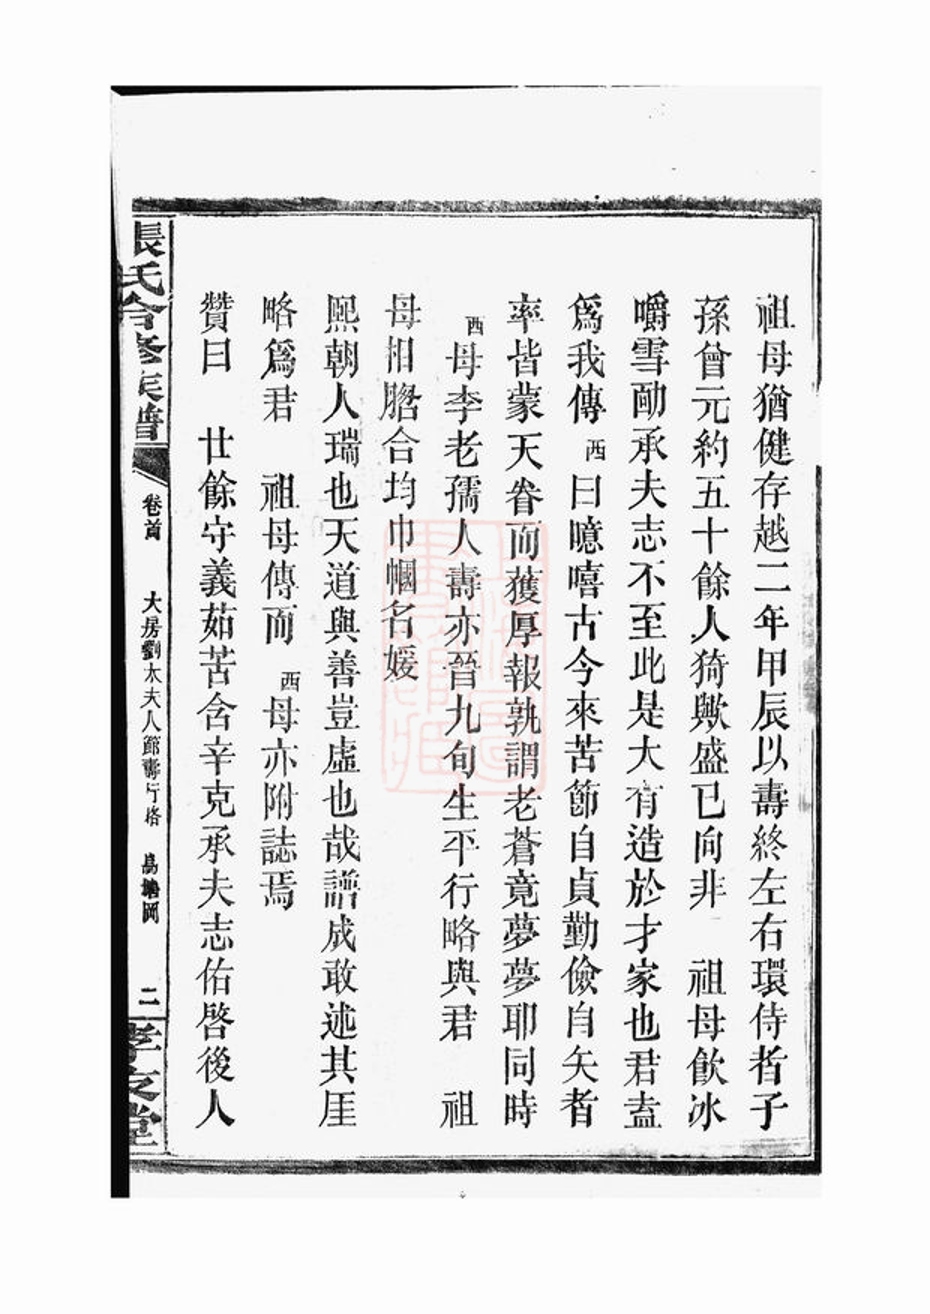 祖母猶健存越二年甲辰以壽終左右環侍者子
孫曾元約五十餘人猗歟盛已向非　祖母飲冰
嚼雪勔承夫志不至此是大有造於才家也君盍
爲我傳西曰噫嘻古今來苦節自貞勤儉自矢者
率皆蒙天眷而獲厚報孰謂老蒼竟夢夢耶同時
西母李老孺人壽亦晉九旬生平行略與君　祖
母相脗合均巾幗名媛
熙朝人瑞也天道與善豈虛也哉譜成敢述其厓
略爲君　祖母傳而　西母亦附誌焉
贊曰　廿餘守義茹苦含辛克承夫志佑啓後人
張氏合修族譜　卷首　大房劉太夫人節壽行略　島塘岡　二　孝友堂